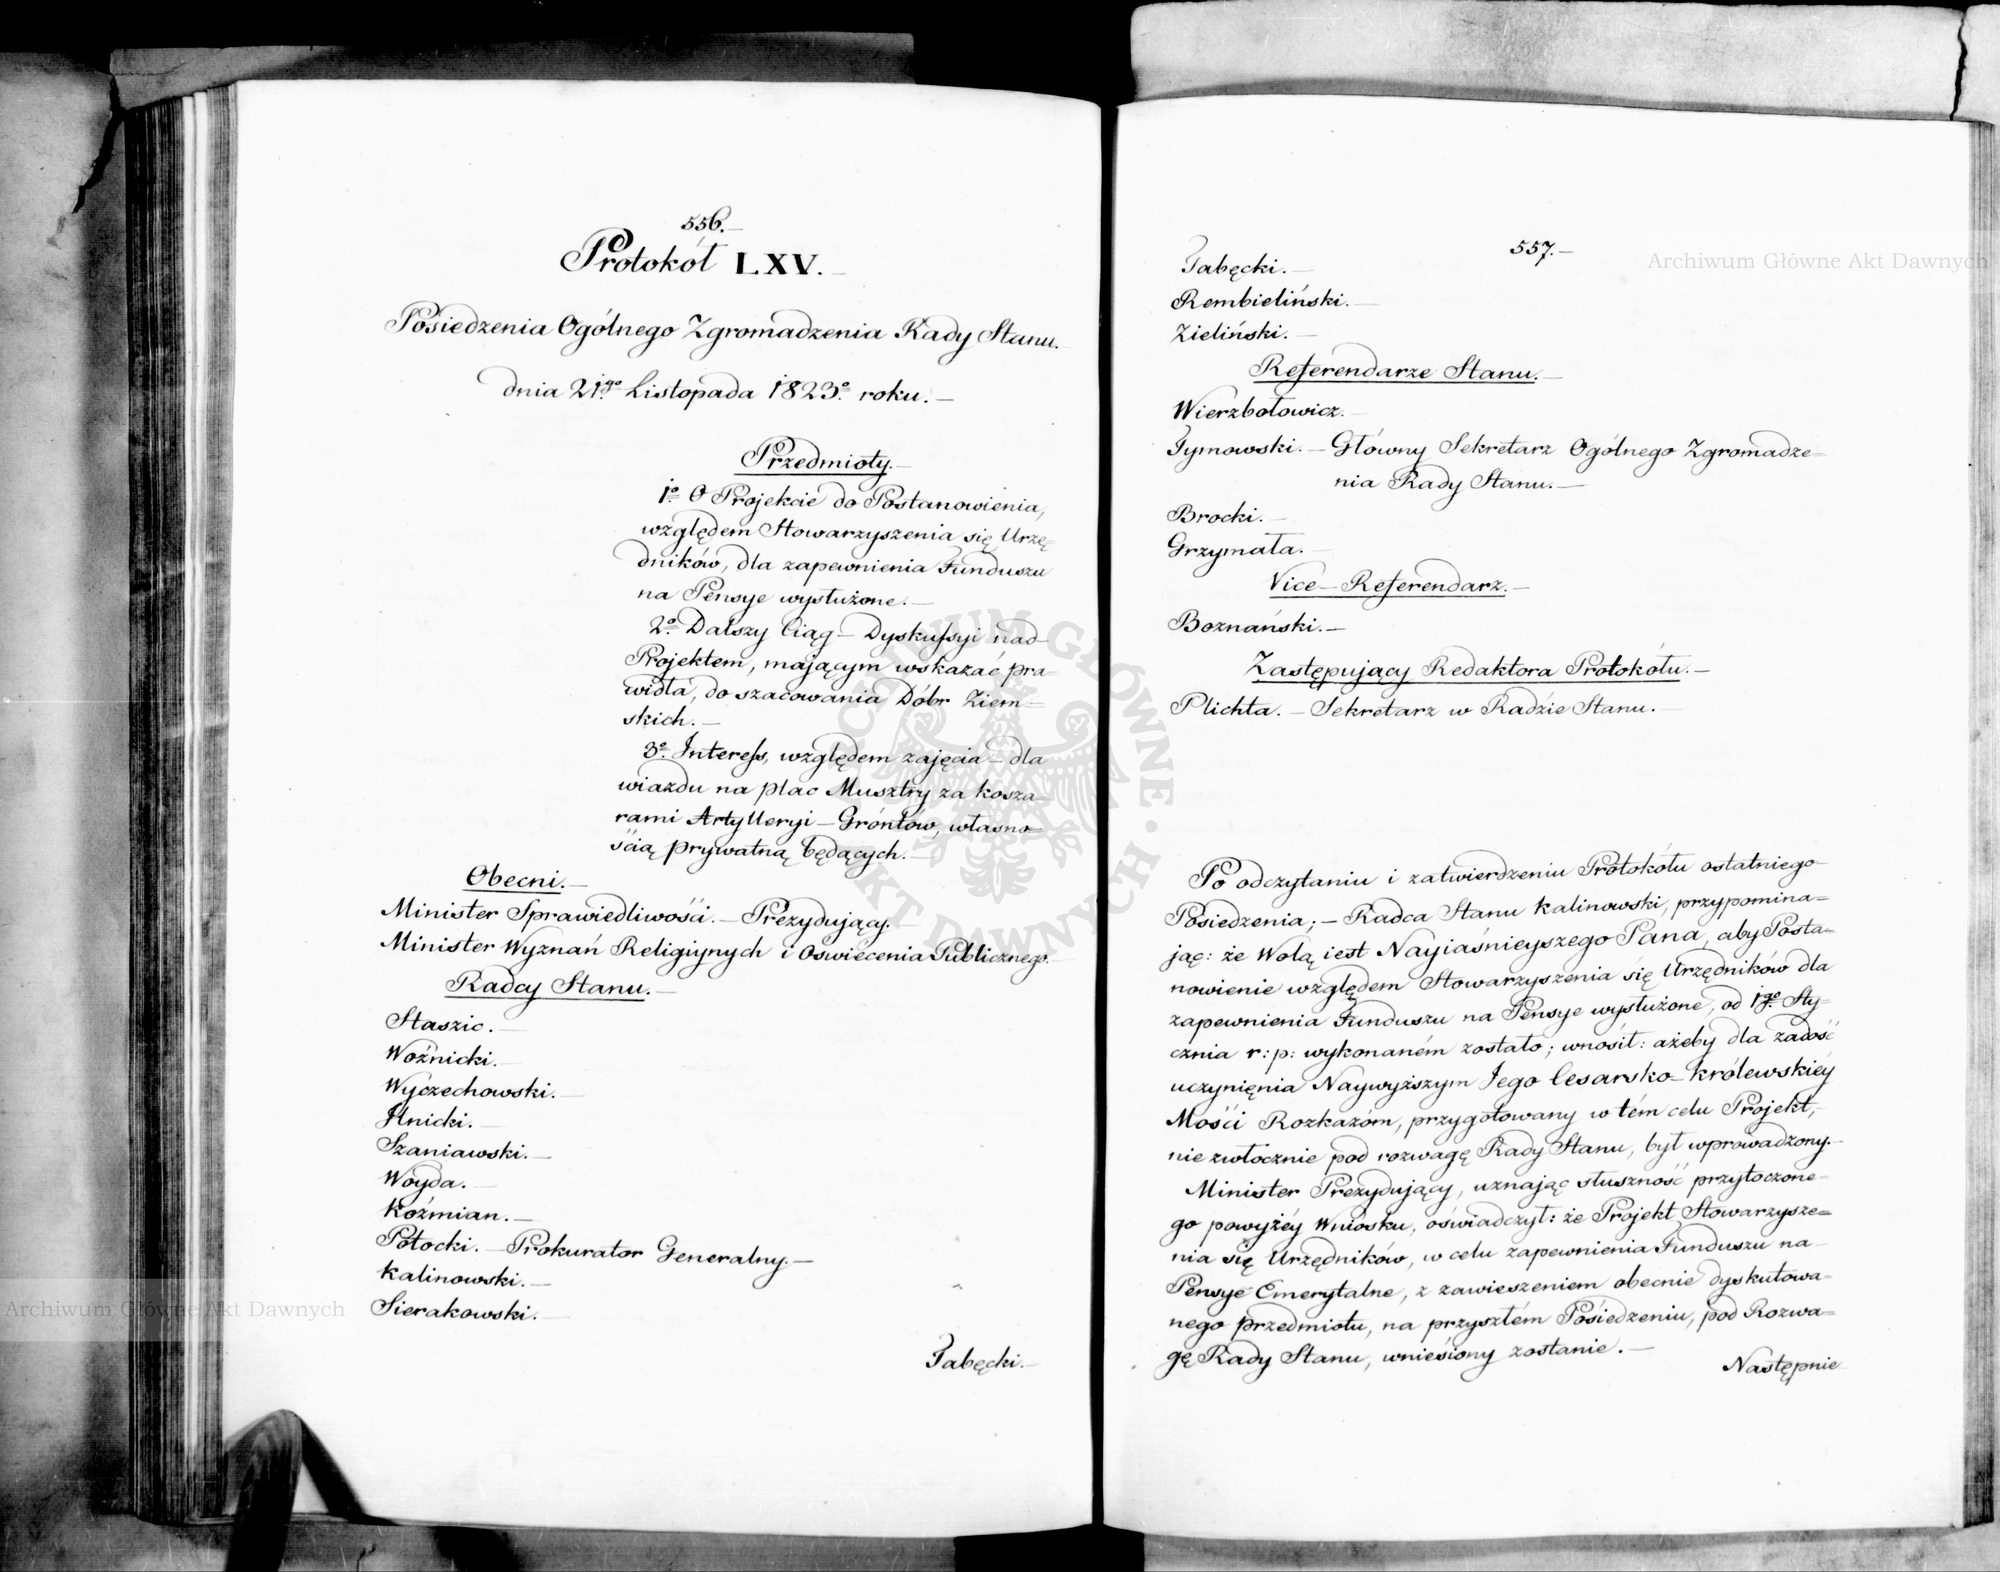 556.
Protokół LXV.
Posiedzenia Ogólnego Zgromadzenia Rady Stanu.
dnia 21go Listopada 1823o roku.
Przedmioty.
1o O Projekcie do Postanowienia,
względem Stowarzyszenia się Urzę=
dników, dla zapewnienia Funduszu
na Pensye wysłużone.
2o Dalszy Ciąg Dyskussyi nad
Projektem, mającym wskazać pra=
widła, do szacowania Dóbr Ziem=
skich.
3o Interess, względem zajęcia dla
wiazdu na plac Musztry za kosza=
rami Artylleryi Gróntów, własno=
ścią prywatną będących.
Obecni.
Minister Sprawiedliwości. Prezydujący.
Minister Wyznań Religiynych i Oświecenia Publicznego.
Radcy Stanu.
Staszic.
Woźnicki.
Wyczechowski.
Lnicki.
Szaniawski.
Woyda.
Koźmian.
Potocki. Prokurator Generalny.
Kalinowski.
Sierakowski.
Tabęcki.
557.
Tabęcki.
Rembieliński.
Zieliński.
Referendarze Stanu.
Wierzbołowicz.
Tymowski. Główny Sekretarz Ogólnego Zgromadze=
nia Rady Stanu.
Brocki.
Grzymała.
Vice-Referendarz.
Boznański.
Zastępujący Redaktora Protokółu.
Plichta. Sekretarz w Radzie Stanu.
Po odczytaniu i zatwierdzeniu Protokółu ostatniego
Posiedzenia; Radca Stanu Kalinowski, przypomina=
jąc: że Wolą iest Nayiaśnieyszego Pana, aby Posta=
nowienie względem Stowarzyszenia się Urzędników dla
zapewnienia Funduszu na Pensye wysłużone, od 1go Sty=
cznia r: p: wykonaném zostało; wnosił: ażeby dla zadość
uczynięnia Naywyższym Jego Cesarsko-Królewskiéy
Mości Rozkazóm, przygotowany w tém celu Projekt,
nie zwłocznie pod rozwagę Rady Stanu, był wprowadzony.
Minister Prezydujący, uznając słuszność przytoczone=
go powyżéy Wniosku, oświadczył: że Projekt Stowarzysze=
nia się Urzędników, w celu zapewnienia Funduszu na
Pensye Emerytalne, z zawieszeniem obecnie dyskutowa=
nego przedmiotu, na przyszłém Posiedzeniu, pod Rozwa=
gę Rady Stanu, wniesiony zostanie.
Następnie
Archiwum Główne Akt Dawnych
Archiwum Główne Akt Dawnych
ARCHIWUM GŁÓWNE AKT DAWNYCH